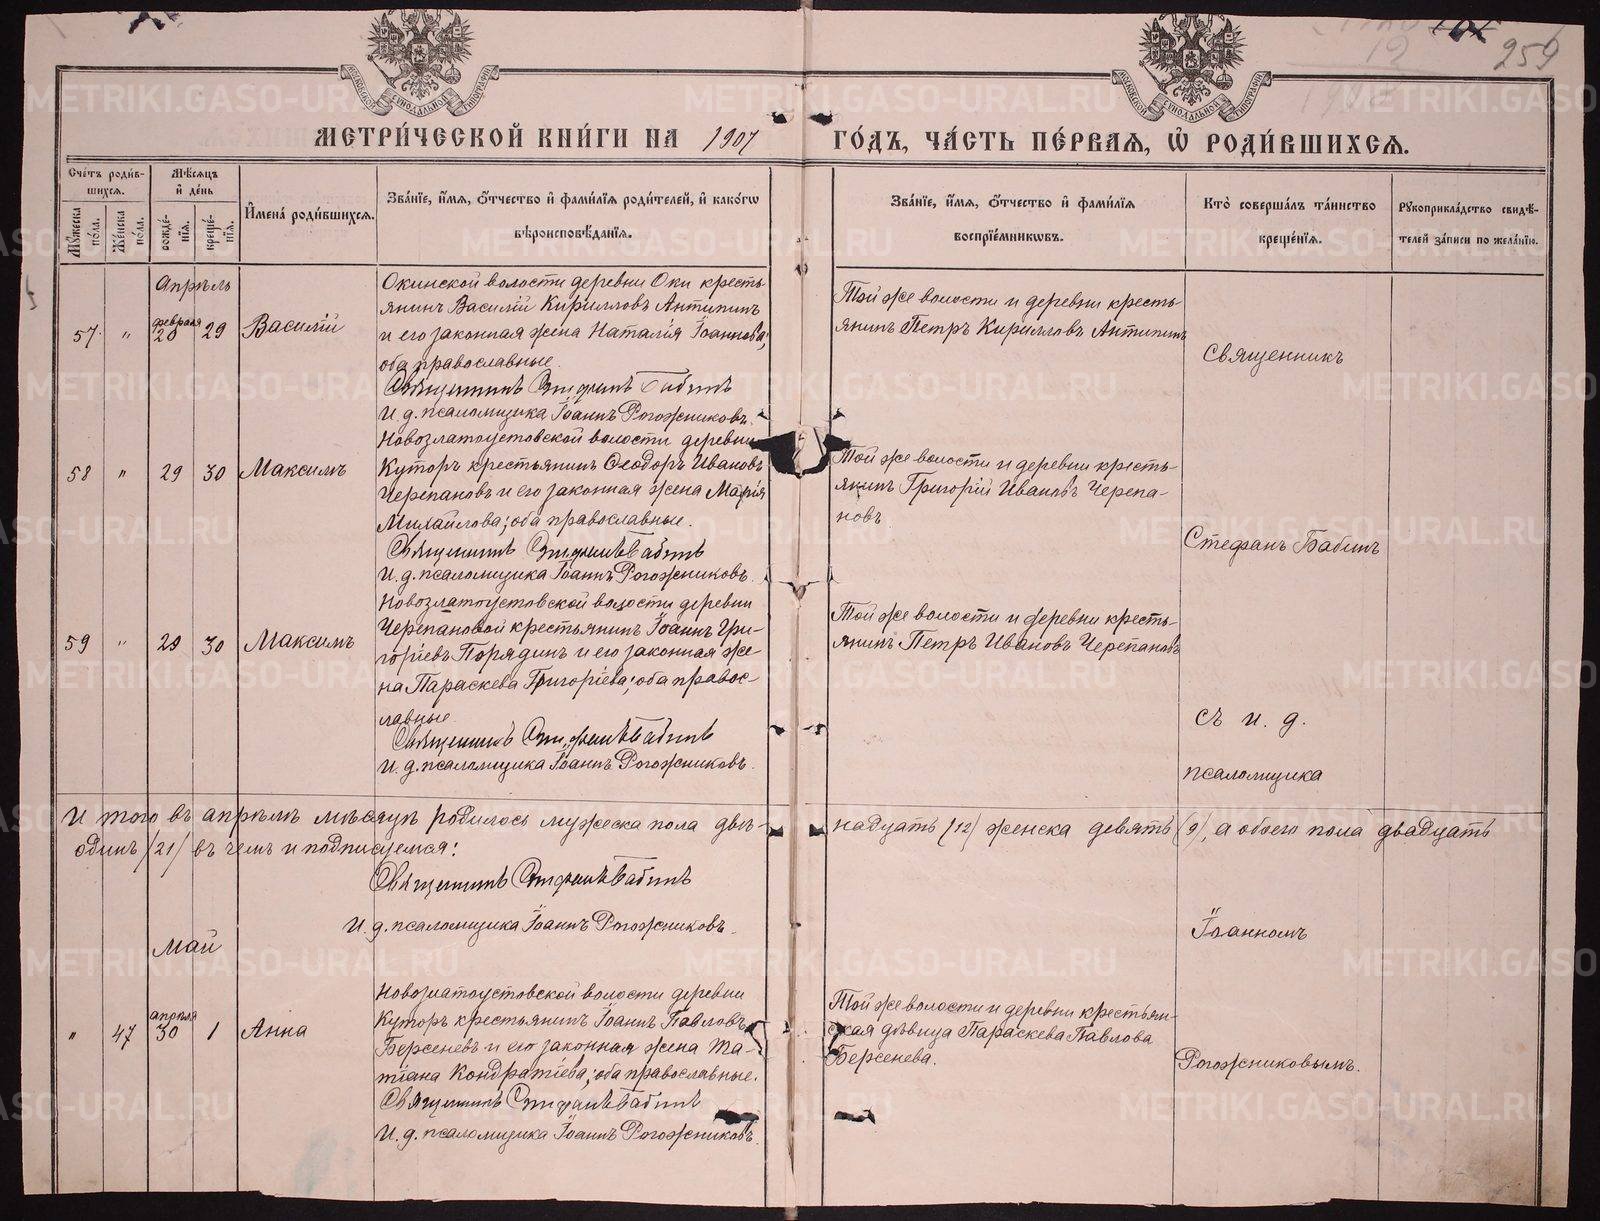 259
МОСКОВСКОЙ СѴНОДАЛЬНОЙ ТИПОГРАФІИ
МОСКОВСКОЙ СѴНОДАЛЬНОЙ ТИПОГРАФІИ
МЕТРИ́ЧЕСКОЙ КНИ́ГИ НА 1907 ГО́ДЪ, ЧА́СТЬ ПЕ́РВАѦ, Ѡ҆ РОДИ́ВШИХСѦ.
Сче́тъ роди́в-
шихсѧ.
Мѣ́сѧцъ
и҆ де́нь
Мꙋ́жеска по́ла.
Же́нска по́ла.
рожде́-
нїѧ.
креще́-
нїѧ.
И҆мена̀ роди́вшихсѧ.
Зва́нїе, и҆́мѧ, ѻ҆́тчество и҆ фами́лїѧ роди́телей, и҆ како́гѡ
вѣроисповѣ́данїѧ.
Зва́нїе, и҆́мѧ, ѻ҆́тчество и҆ фами́лїѧ
воспрїе́мникѡвъ.
Кто̀ соверша́лъ та́инство
креще́нїѧ.
Рꙋкоприкла́дство свидѣ́-
телей за́писи по жела́нїю.
Апрѣль
57. " февраля 28 29 Василій
Окинской волости деревни Оки кресть
янинъ Василій Кирилловъ Антипинъ
и его законная жена Наталія Іоаннова;
оба православные.
Священникъ Стефанъ Бабинъ
И. д. псаломщика Іоаннъ Рогожниковъ.
Той же волости и деревни кресть-
янинъ Петръ Кирилловъ Антипинъ
Священникъ
58 " 29 30 Максимъ
Новозлатоустовской волости деревни
Куторъ крестьянинъ Ѳеодоръ Ивановъ
Черепановъ и его законная жена Марія
Михайлова; оба православные.
Священникъ Стефанъ Бабинъ
И. д. псаломщика Іоаннъ Рогожниковъ.
Той же волости и деревни кресть-
янинъ Григорій Ивановъ Черепа-
новъ
Стефанъ Бабинъ
59 " 29 30 Максимъ
Новозлатоустовской волости деревни
Черепановой крестьянинъ Іоаннъ Гри-
горіевъ Порядинъ и его законная же-
на Параскева Григоріева; оба правос-
лавные.
Священникъ Стефанъ Бабинъ
И. д. псаломщика Іоаннъ Рогожниковъ.
Той же волости и деревни кресть-
янинъ Петръ Ивановъ Черепановъ
съ и. д.
псаломщика
И того въ апрѣлѣ мѣсяцѣ родилось мужеска пола двѣ-надцать /12/ женска девять (9), а обоего пола двадцать
одинъ /21/ въ чемъ и подписуемся:
Священникъ Стефанъ Бабинъ
И. д. псаломщика Іоаннъ Рогожниковъ.
Іоанномъ
Май
" 47 апрѣля 30 1 Анна
Новозлатоустовской волости деревни
Куторъ крестьянинъ Іоаннъ Павловъ
Берсеневъ и его законная жена Та-
тіана Кондратіева; оба православные.
Священникъ Стефанъ Бабинъ
И. д. псаломщика Іоаннъ Рогожниковъ.
Той же волости и деревни крестьян-
ская дѣвица Параскева Павлова
Берсенева.
Рогожниковымъ.
METRIKI.GASO-URAL.RU